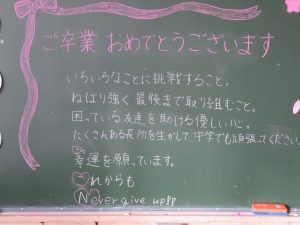 ご卒業 おめでとうございます
いろいろなことに挑戦すること。
ねばり強く 最後まで取り組むこと。
困っている友達を助ける優しい心。
たくさんある長所を生かして、中学でも頑張ってください
幸運を願っています。
これからも
Never give up!!